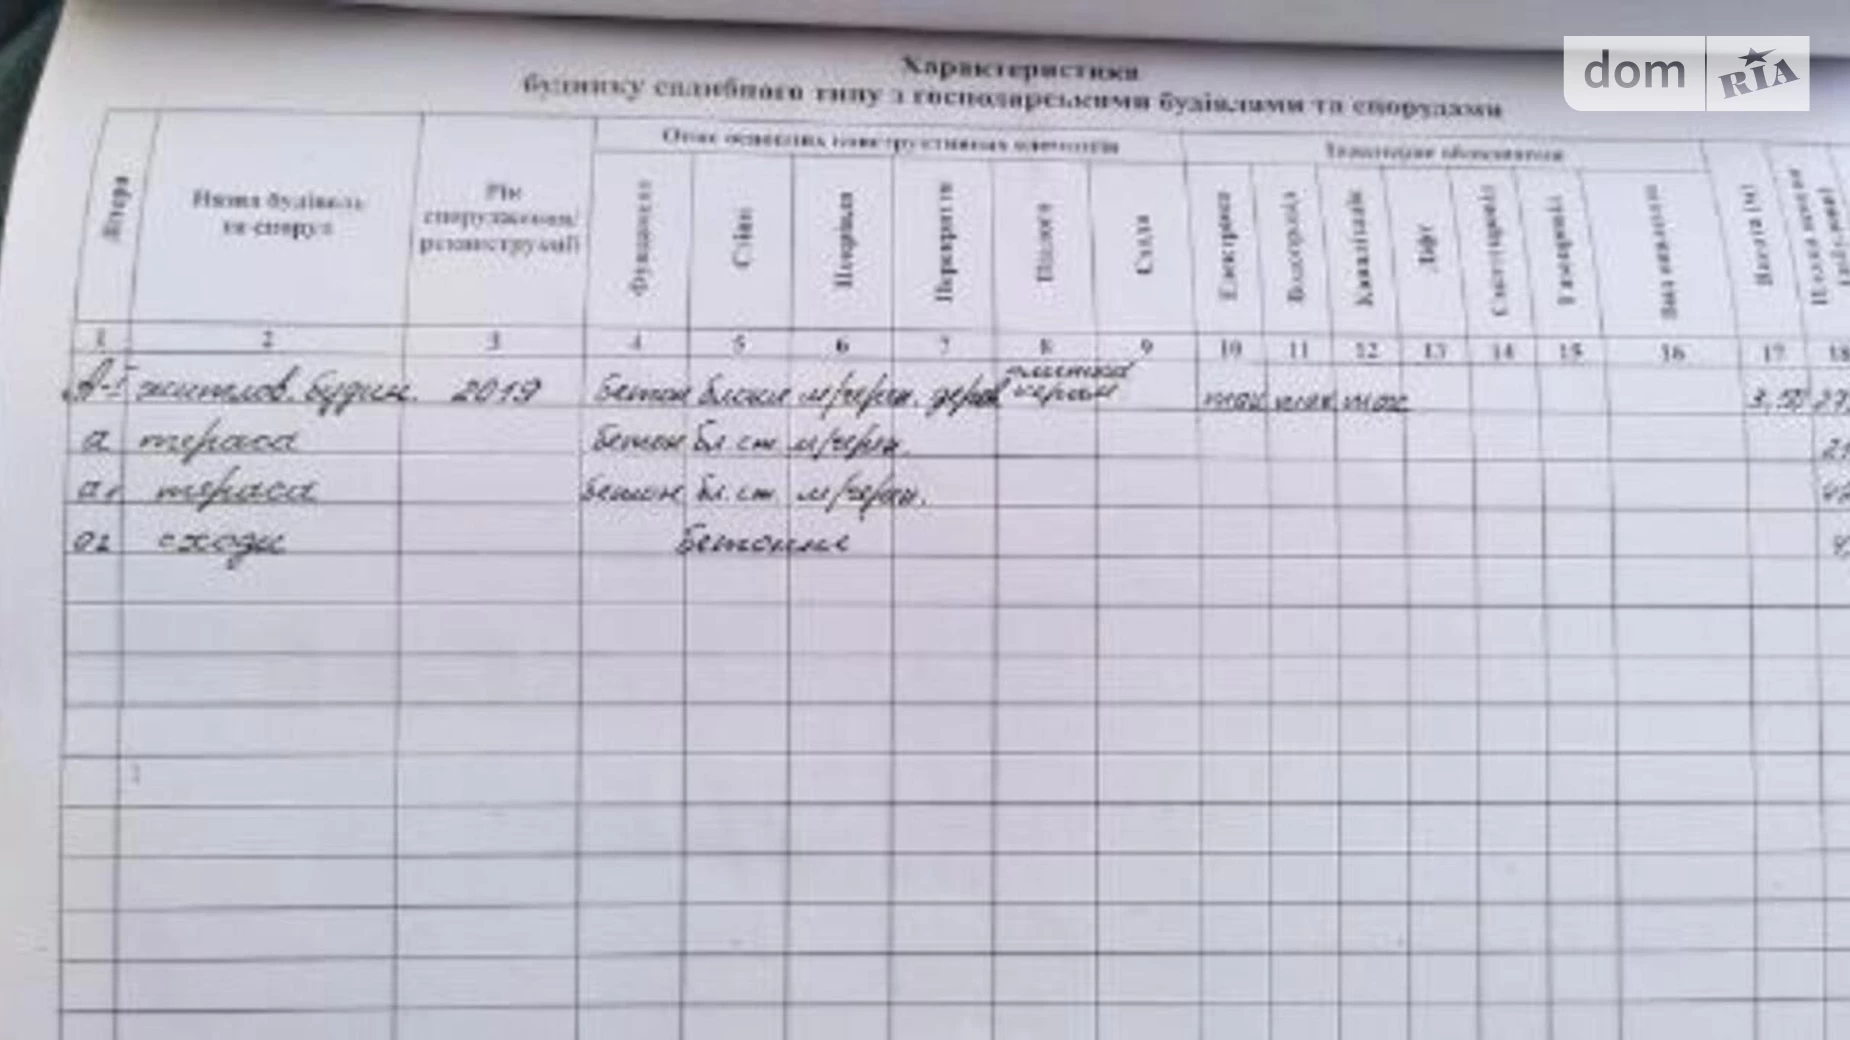 dom RIA
Характеристика
будинку садибного типу з господарськими будівлями та спорудами
Опис основних конструктивних елементів
Інженерне обладнання
Літера
Назва будівель
та споруд
Рік
спорудження/
реконструкції
Фундамент
Стіни
Покрівля
Перекриття
Підлога
Сходи
Електрика
Водопровід
Каналізація
Ліфт
Сміттєпровід
Газопровід
Вид опалення
Висота (м)
1 2 3 4 5 6 7 8 9 10 11 12 13 14 15 16 17 18
А-І житлов. будин. 2019 бетон блоки м/череп. дерев плитка керам так так так 3,50 27
а тераса бетон бл. ст. м/череп. 21
а₁ тераса бетон бл. ст. м/череп.
а₂ сходи бетонні 4,